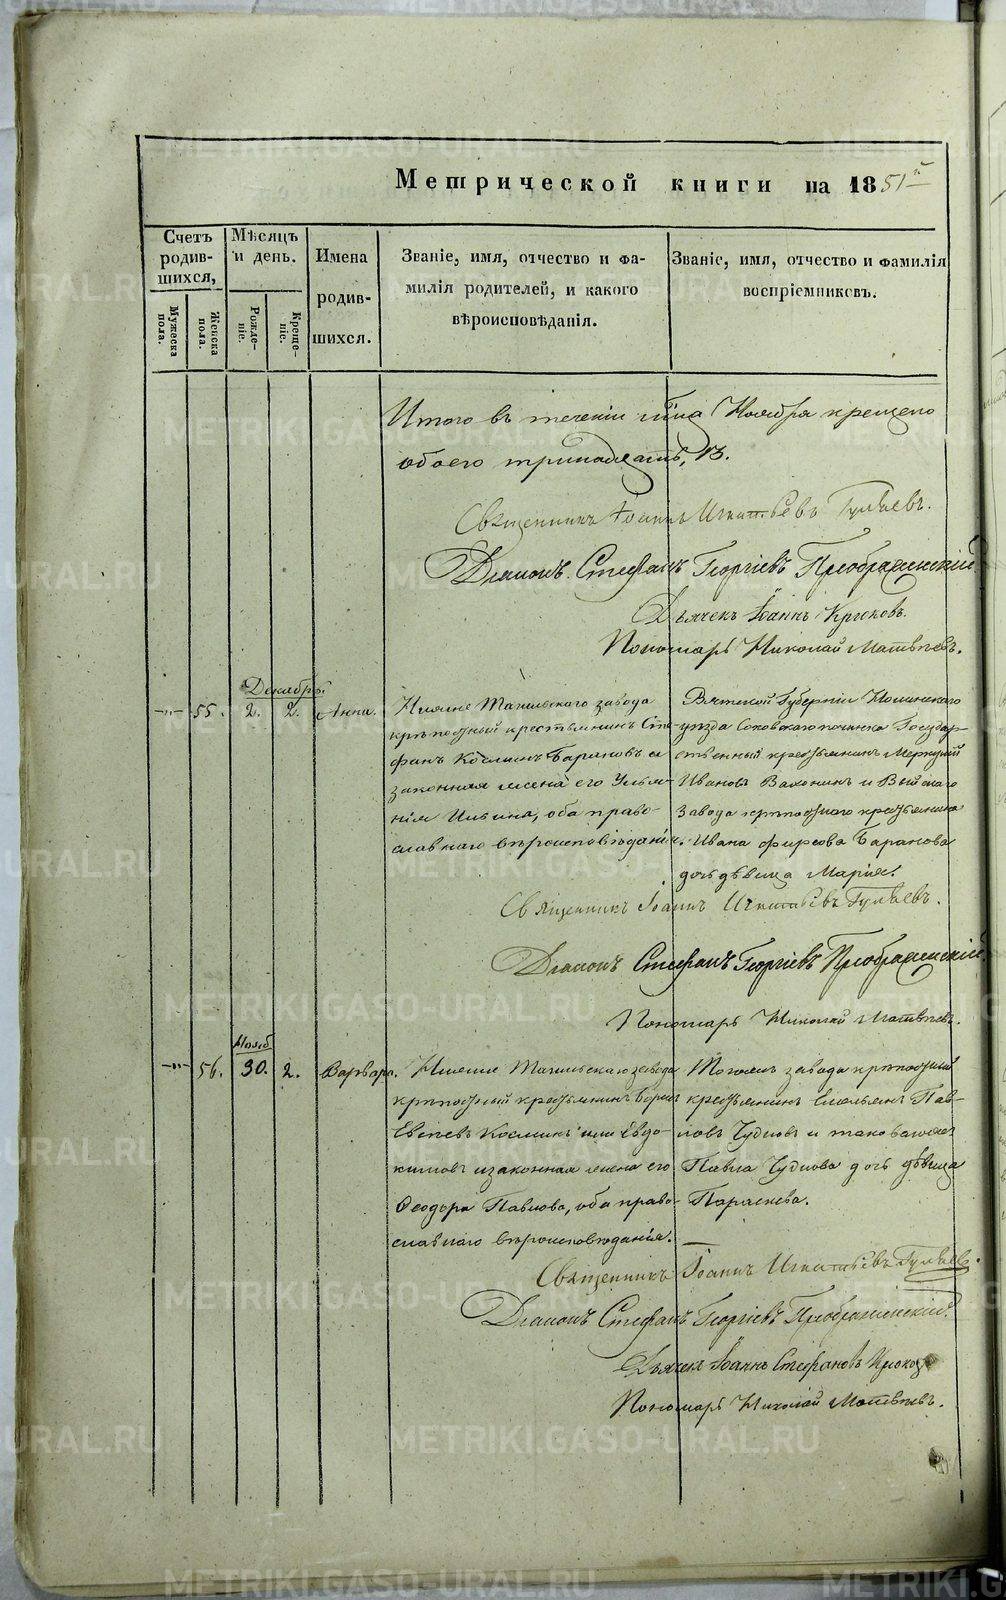 Метрической книги на 1851й
Счетъ родившихся,
Мужеска пола.
Женска пола.
Мѣсяцъ и день.
Рожденіе.
Крещеніе.
Имена родившихся.
Званіе, имя, отчество и фамилія родителей, и какого вѣроисповѣданія.
Званіе, имя, отчество и фамилія воспріемниковъ.
Итого въ теченіи Ноября крещено
обоего тринадцать, 13.
Священникъ Іоаннъ Игнатьевъ
Діаконъ Стефанъ Георгіевъ Преображенскій
Дьячекъ Іоаннъ Крюковъ.
Пономарь Николай Матвѣевъ.
Декабрь.
55. 2. 2. Анна.
Нижне Тагильскаго завода
крѣпостный крестьянинъ Сте-
фанъ Косминъ Барановъ и
законная жена его Улья-
нія Ильина, оба право-
славнаго вѣроисповѣданія.
Вятской Губерніи
уѣзда починка Государ-
ственный крестьянинъ Меркурій
Ивановъ и Выйскаго
Завода крѣпостнаго крестьянина
Ивана Фирсова Баранова
дочь дѣвица Марія.
Священникъ Іоаннъ Игнатьевъ
Діаконъ Стефанъ Георгіевъ Преображенскій.
Пономарь Николай Матвѣевъ.
Нояб.
56. 30. 2. Варвара.
Нижне Тагильскаго завода
крѣпостный крестьянинъ Борисъ
Косминъ или Евдо-
кимовъ и законная жена его
Ѳеодора Павлова, оба право-
славнаго вѣроисповѣданія.
Тогожъ завода крѣпостный
крестьянинъ Емельянъ Пав-
ловъ Чудновъ и таковагожъ
Павла Чуднова дочь дѣвица
Параскева.
Священникъ Іоаннъ Игнатьевъ
Діаконъ Стефанъ Георгіевъ Преображенскій.
Дьячекъ Іоаннъ Стефановъ Крюковъ
Пономарь Николай Матвѣевъ.
METRIKI.GASO-URAL.RU